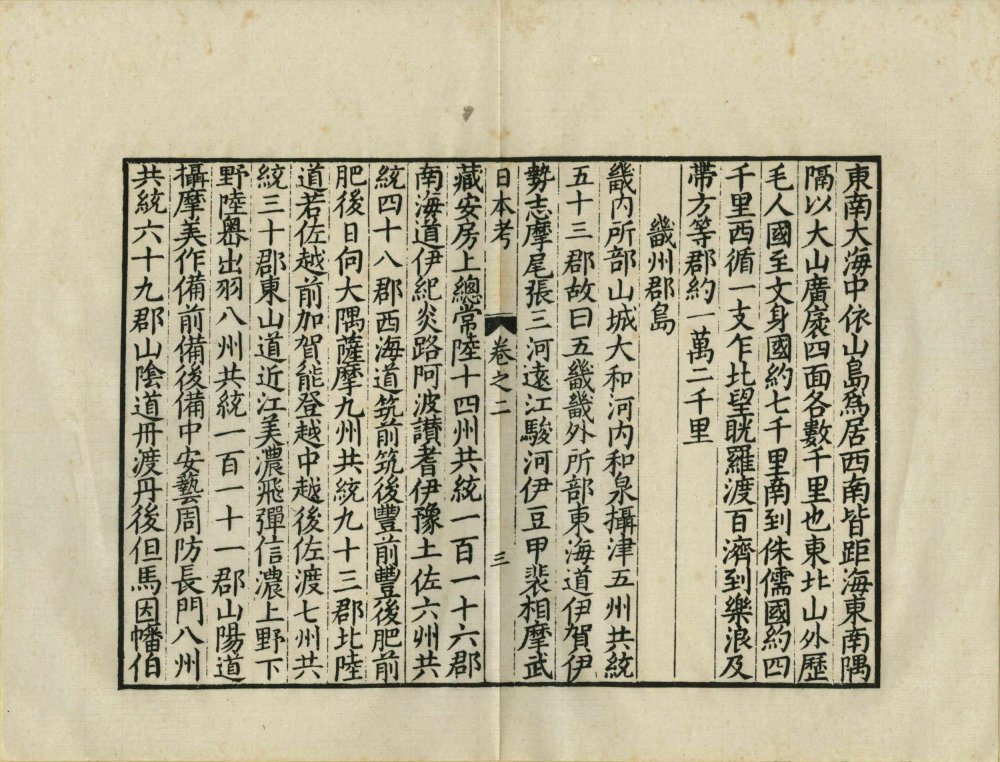 東南大海中依山島爲居西南皆距海東南隅
隔以大山廣袤四面各數千里也東北山外歷
毛人國至文身國約七千里南到侏儒國約四
千里西循一支乍北望眺羅渡百濟到樂浪及
帶方等郡約一萬二千里
畿州郡島
畿内所部山城大和河内和泉攝津五州共統
五十三郡故曰五畿畿外所部東海道伊賀伊
勢志摩尾張三河遠江駿河伊豆甲裴相摩武
日本考
卷之二
三
藏安房上總常陸十四州共統一百一十六郡
南海道伊紀炎路阿波讃耆伊豫土佐六州共
統四十八郡西海道筑前筑後豐前豐後肥前
肥後日向大隅薩摩九州共統九十三郡北陸
道若佐越前加賀能登越中越後佐渡七州共
統三十郡東山道近江美濃飛彈信濃上野下
野陸奧出羽八州共統一百一十一郡山陽道
攝摩美作備前備後備中安藝周防長門八州
共統六十九郡山陰道丹渡丹後但馬因幡伯